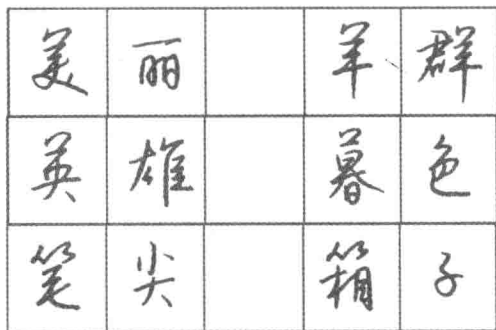 美丽 羊群
英雄 暮色
笔尖 箱子